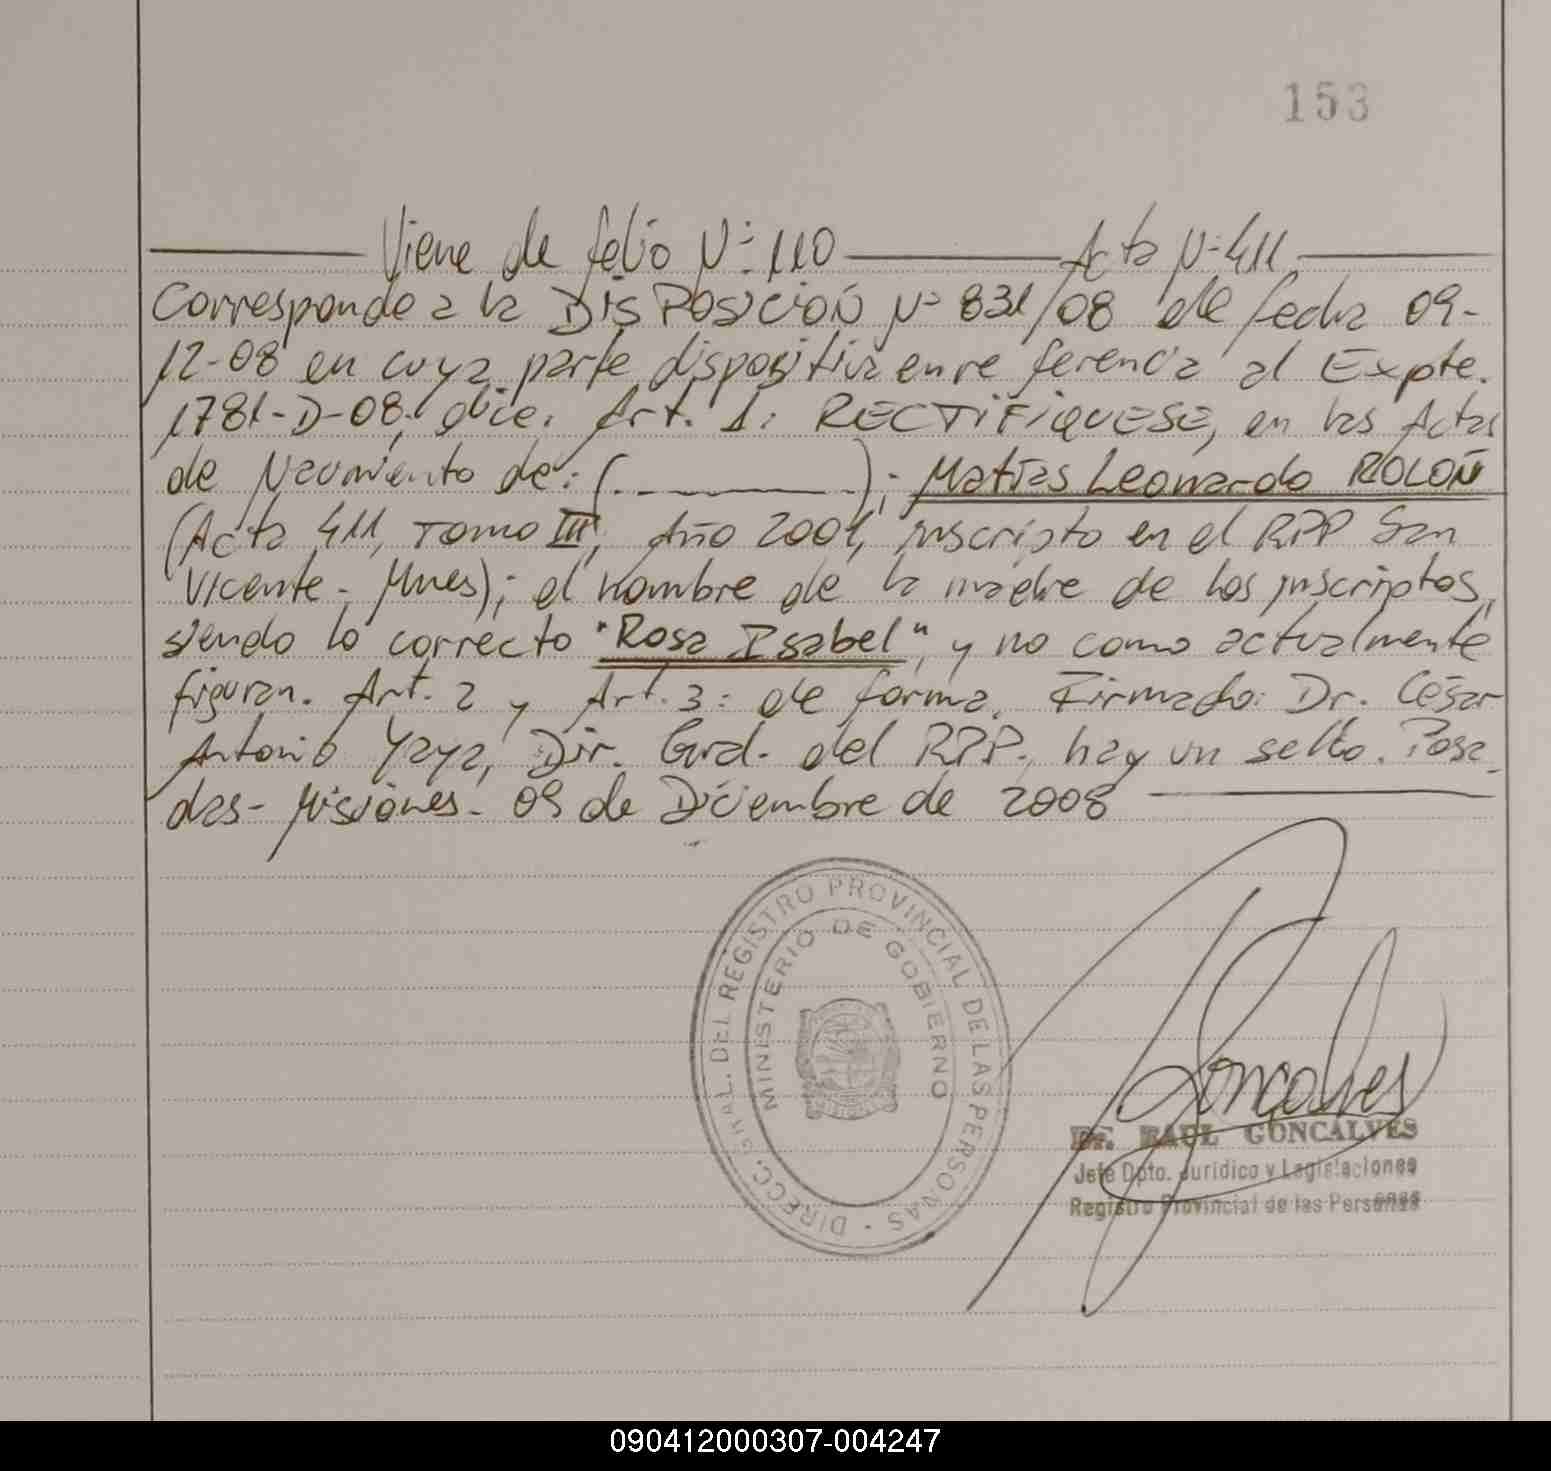 153
Viene de folio N° 110 Acta N° 411
Corresponde a la DISPOSICIÓN N° 831/08 de fecha 09-
12-08 en cuya parte dispositiva en re ferencia al Expte.
1781-D-08, dice: Art. 1: RECTIFIQUESE, en las Actas
de Nacimiento de: (. ______ ); Matías Leonardo ROLON
(Acta 411, Tomo III, Año 2001, inscripto en el RPP San
Vicente - Mnes); el nombre de la madre de los inscriptos,
siendo lo correcto "Rosa Isabel", y no como actualmente
figuran. Art. 2 y Art. 3: de forma. Firmado: Dr. César
Antonio Yaya, Dir. Gral. del RPP., hay un sello. Posa_
das- Misiones- 09 de Diciembre de 2008
DIRECC. GRAL. DEL REGISTRO PROVINCIAL DE LAS PERSONAS -
MINISTERIO DE GOBIERNO
Goncalves
Dr. RAUL GONCALVES
Jefe Dpto. Jurídico y Legislaciones
Registro Provincial de las Personas
090412000307-004247